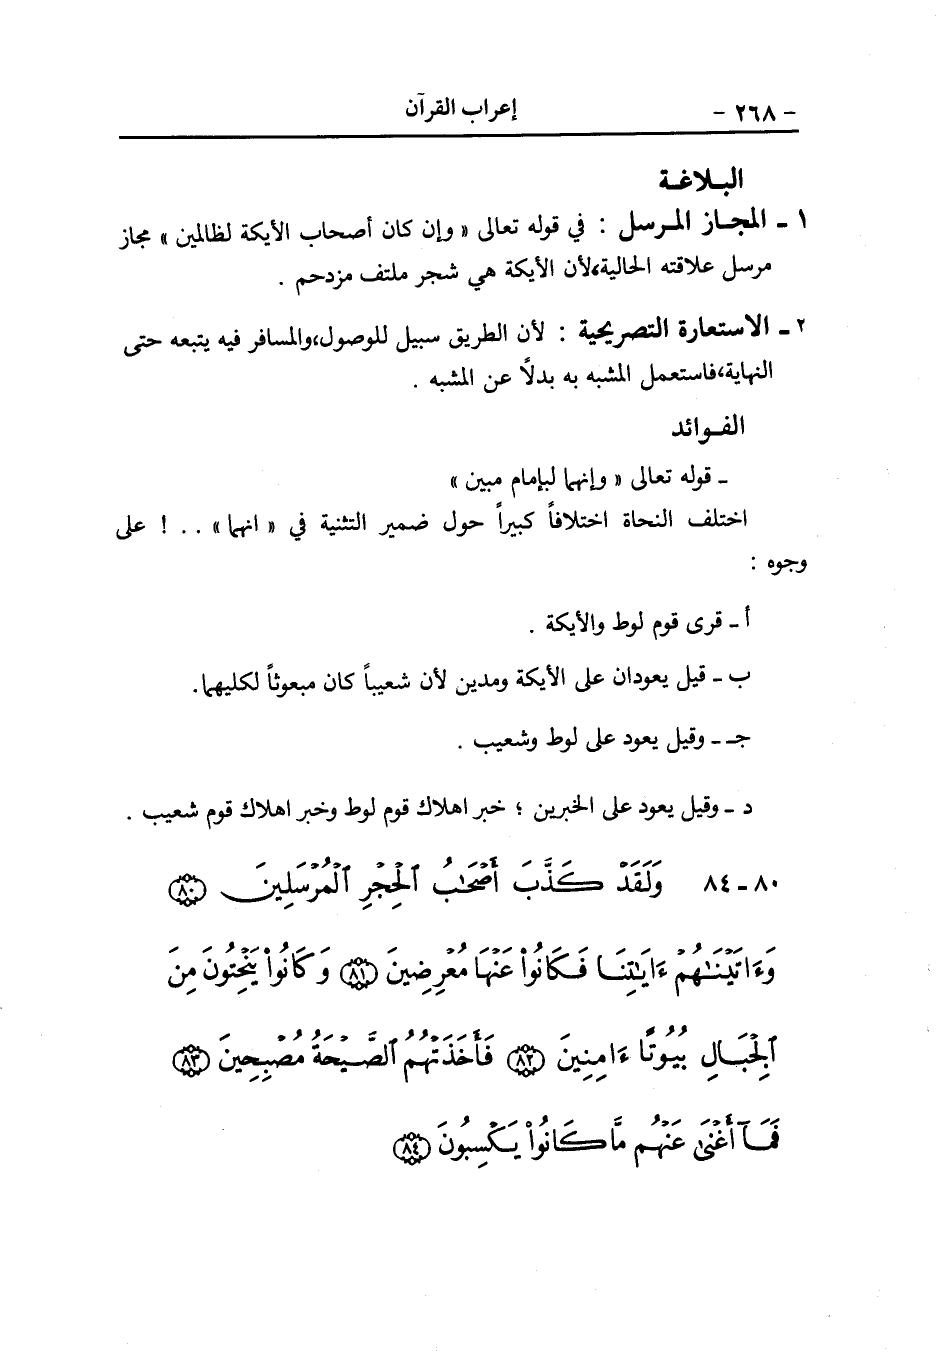 - ٢٦٨ - إعراب القرآن
البـلاغـة
١ ـ المجـاز المـرسل : في قوله تعالى « وإن كان أصحاب الأيكة لظالمين » مجاز
مرسل علاقته الحالية،لأن الأيكة هي شجر ملتف مزدحم .
٢ ـ الاستعارة التصريحية : لأن الطريق سبيل للوصول،والمسافر فيه يتبعه حتى
النهاية،فاستعمل المشبه به بدلاً عن المشبه .
الفـوائد
ـ قوله تعالى « وإنهما لبإمام مبين »
اختلف النحاة اختلافاً كبيراً حول ضمير التثنية في « انهما» .. ! على
وجوه :
أ ـ قرى قوم لوط والأيكة .
ب ـ قيل يعودان على الأيكة ومدين لأن شعيباً كان مبعوثاً لكليهما.
جـ ـ وقيل يعود على لوط وشعيب .
د ـ وقيل يعود على الخبرين ؛ خبر اهلاك قوم لوط وخبر اهلاك قوم شعيب .
٨٠ - ٨٤ وَلَقَدْ كَذَّبَ أَصْحَٰبُ ٱلْحِجْرِ ٱلْمُرْسَلِينَ ﴿٨٠﴾
وَءَاتَيْنَٰهُمْ ءَايَٰتِنَا فَكَانُوا۟ عَنْهَا مُعْرِضِينَ ﴿٨١﴾ وَكَانُوا۟ يَنْحِتُونَ مِنَ
ٱلْجِبَالِ بُيُوتًا ءَامِنِينَ ﴿٨٢﴾ فَأَخَذَتْهُمُ ٱلصَّيْحَةُ مُصْبِحِينَ ﴿٨٣﴾
فَمَآ أَغْنَىٰ عَنْهُم مَّا كَانُوا۟ يَكْسِبُونَ ﴿٨٤﴾